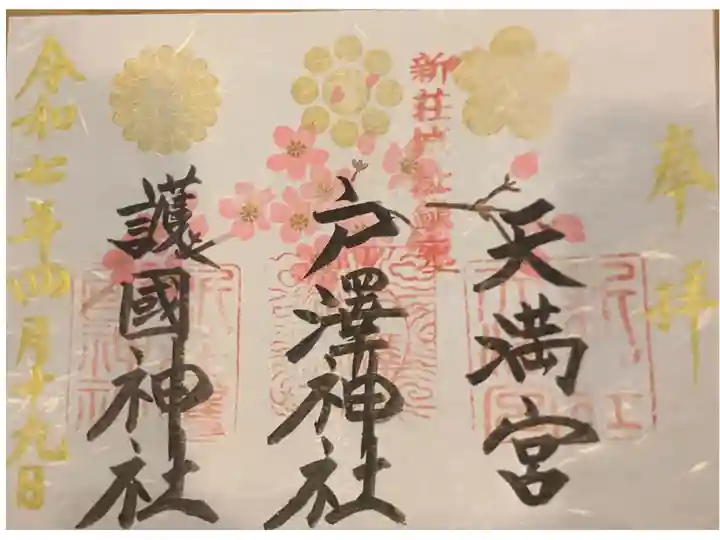 奉拝
天満宮
新荘城址鎮座
戸澤神社
護國神社
令和七年四月十九日